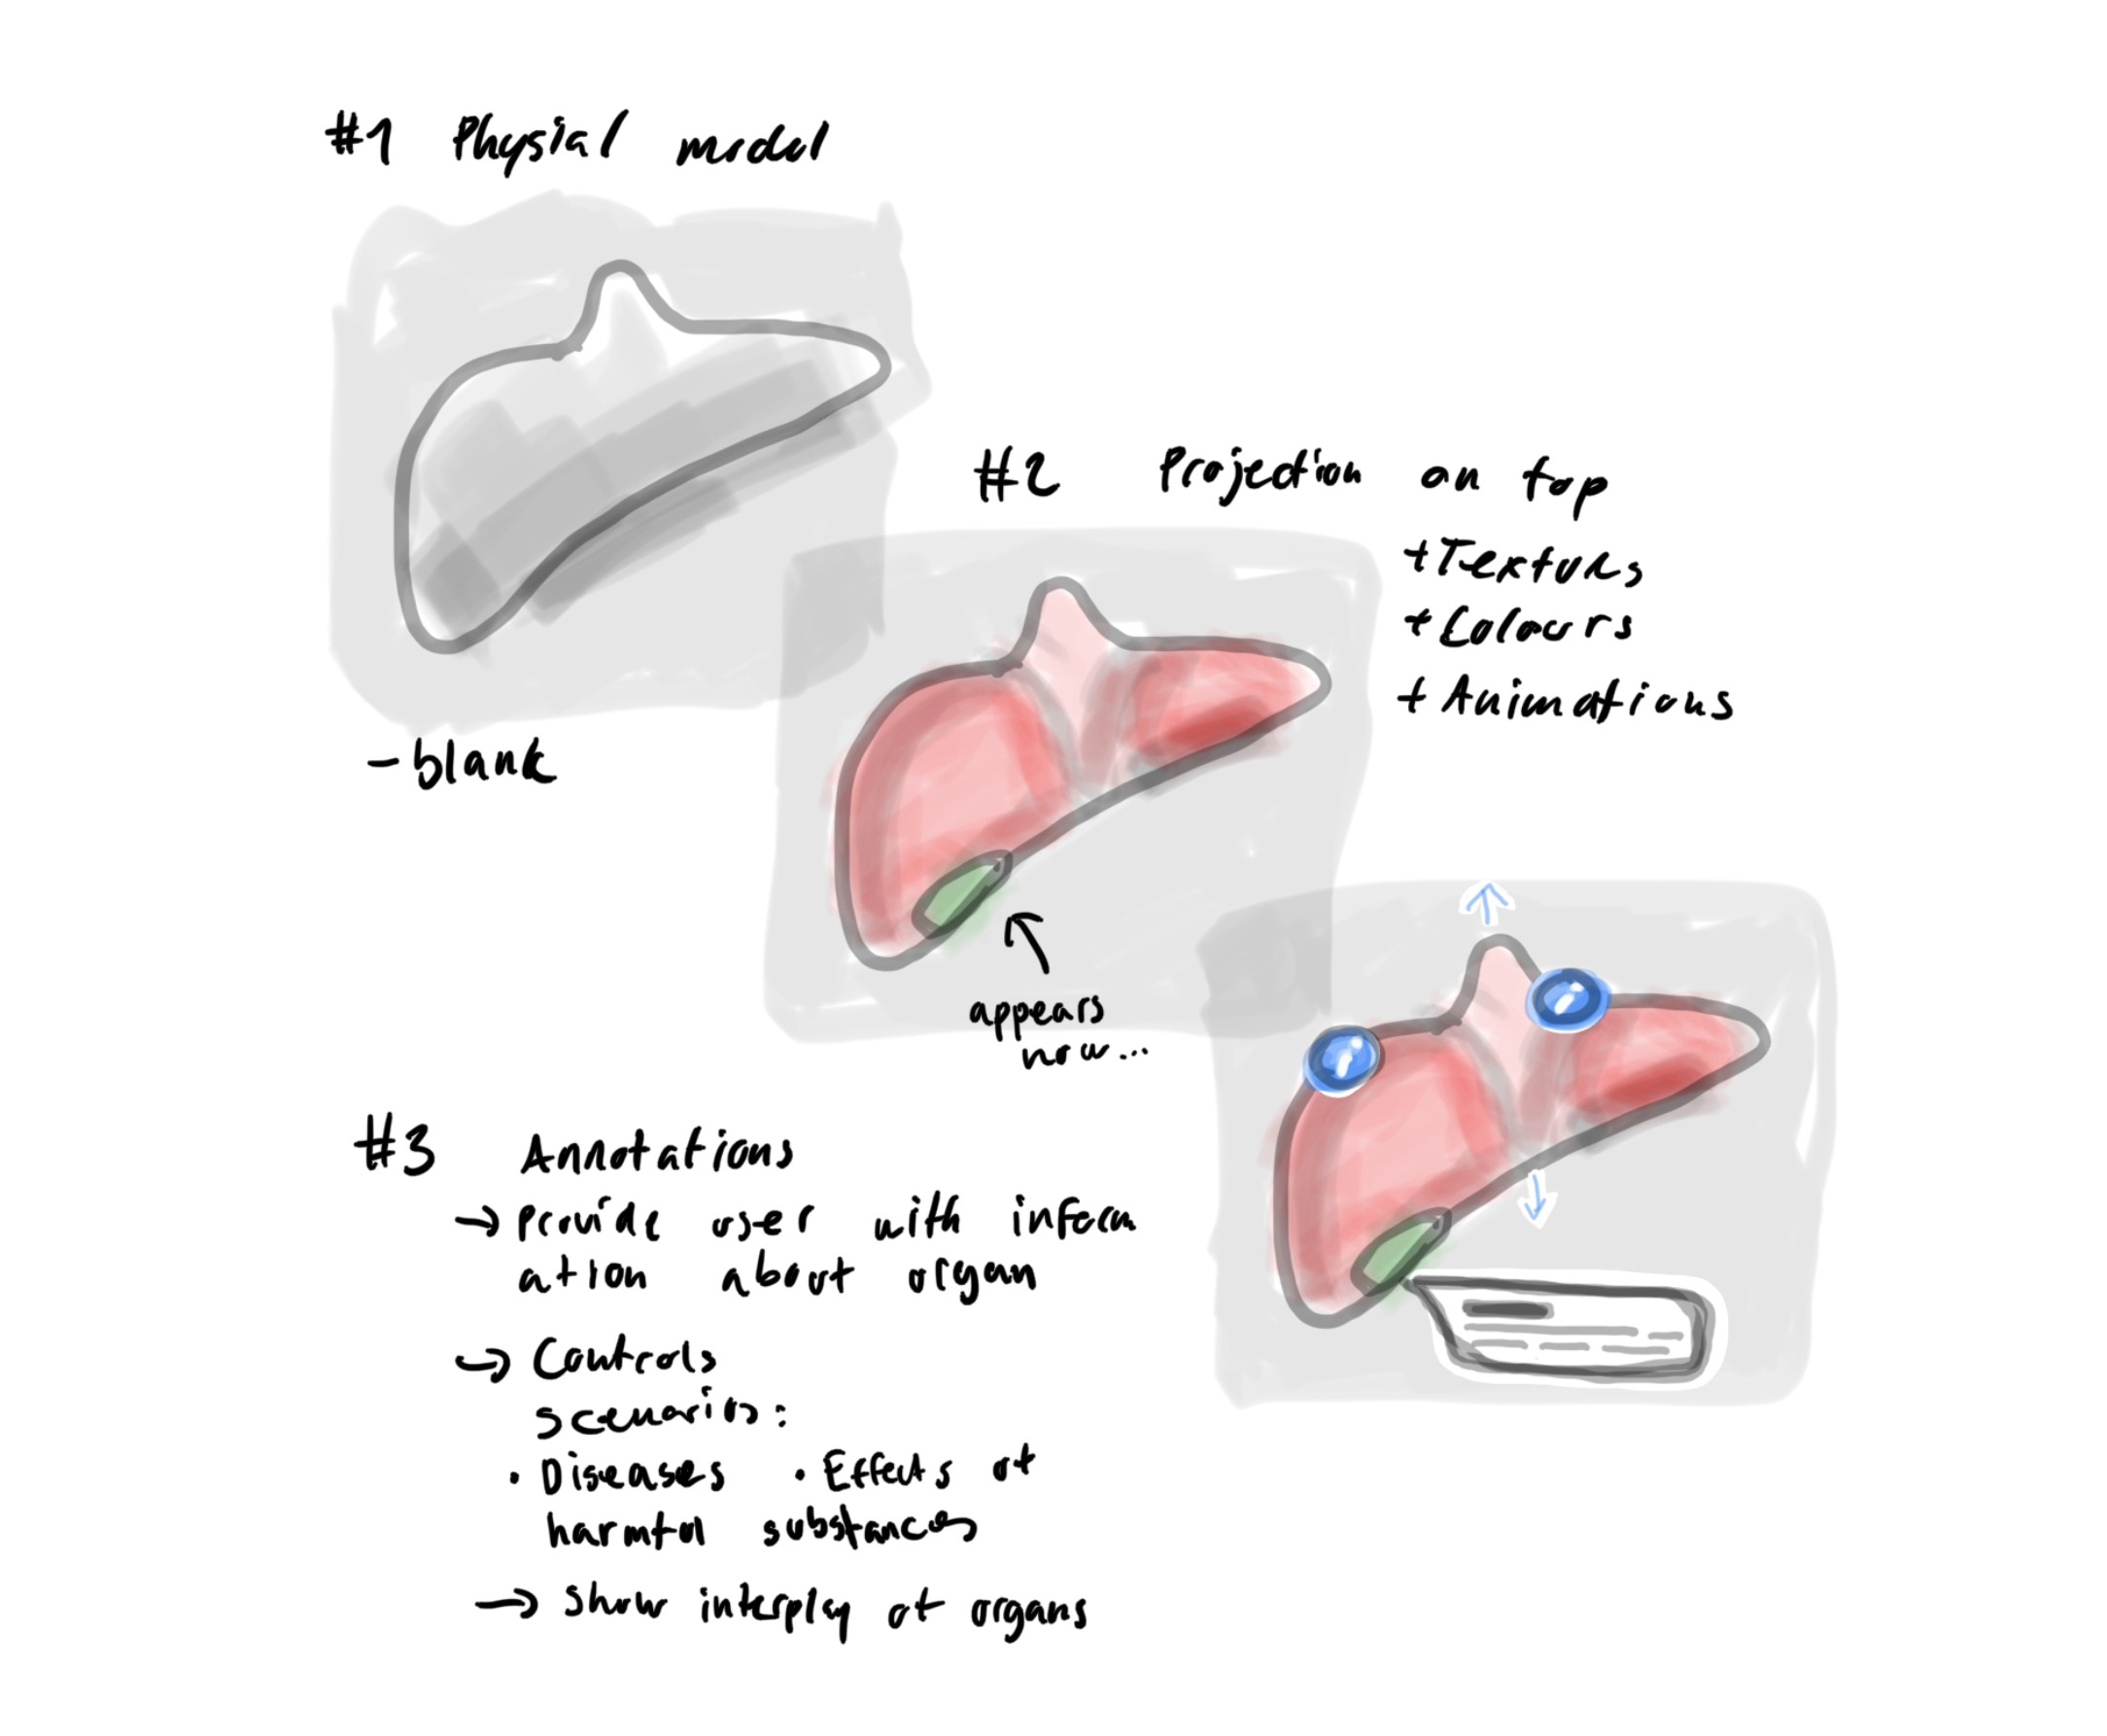 #1 Physial model
-blank
#2 Projection on top
+Textures
+Colours
+Animations
appears
now...
#3 Annotations
→ provide user with inform
ation about organ
→ Controls
scenarios:
• Diseases • Effects of
harmful substances
→ show interplay of organs